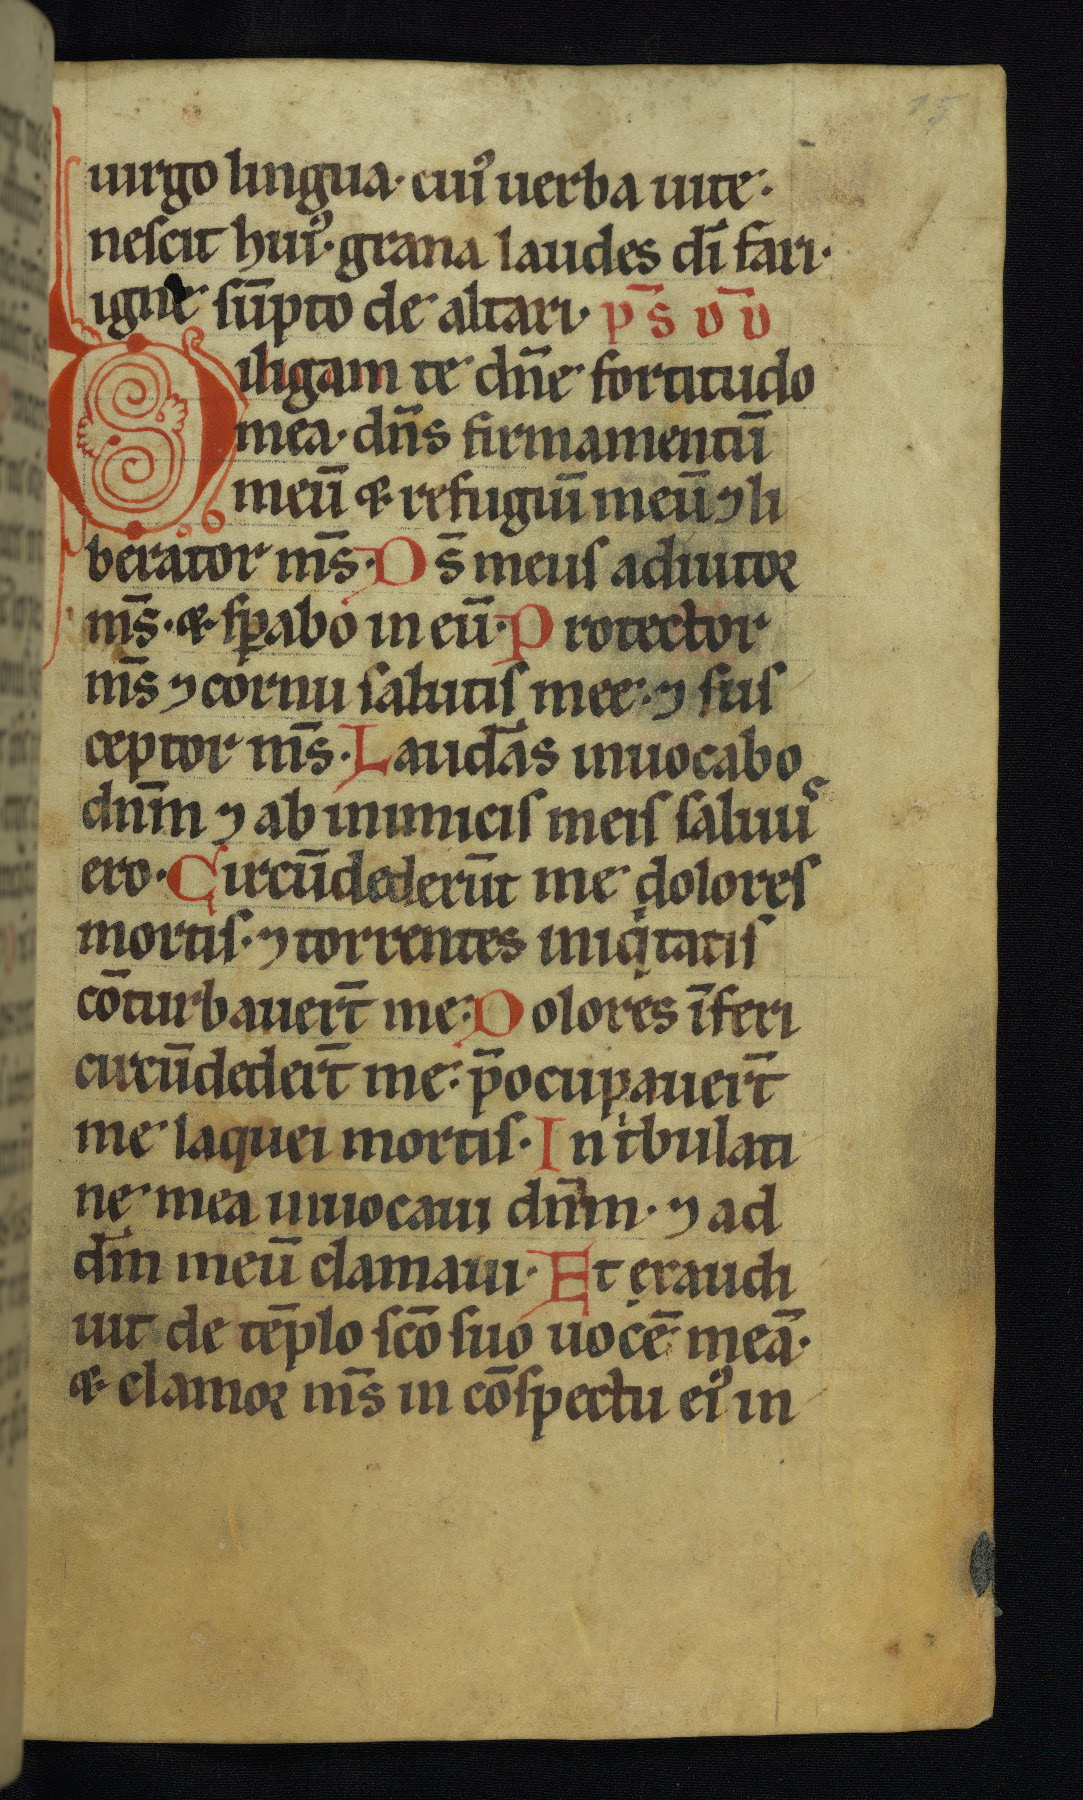 15
uirgo lingua· cuiꝰ uerba uite·
nescit huiꝰ· grana laudes dī fari·
igne sūpto de altari· p̄s ūū
Diligam te dn̄e fortitudo
mea· dn̄s firmamentū
meū & refugiū meū ⁊ li
berator m̄s· Ds̄ meus adiutor
m̄s· & sꝑabo in eū· Protector
m̄s ⁊ cornu salutis mee· ⁊ sus
ceptor m̄s· Laudās inuocabo
dn̄m ⁊ ab inimicis meis saluuˢ
ero· Circūdederūt me dolores
mortis· ⁊ torrentes iniqͥtatis
cōturbauer̄t me· Dolores īferi
circūdeder̄t me· p̄ocupauer̄t
me laquei mortis· In tͥbulati
ne mea inuocaui dn̄m· ⁊ ad
dm̄ meū clamaui· Et exaudi
uit de tēplo sc̄o suo uocē meā·
& clamor m̄s in cōspectu eiꝰ in